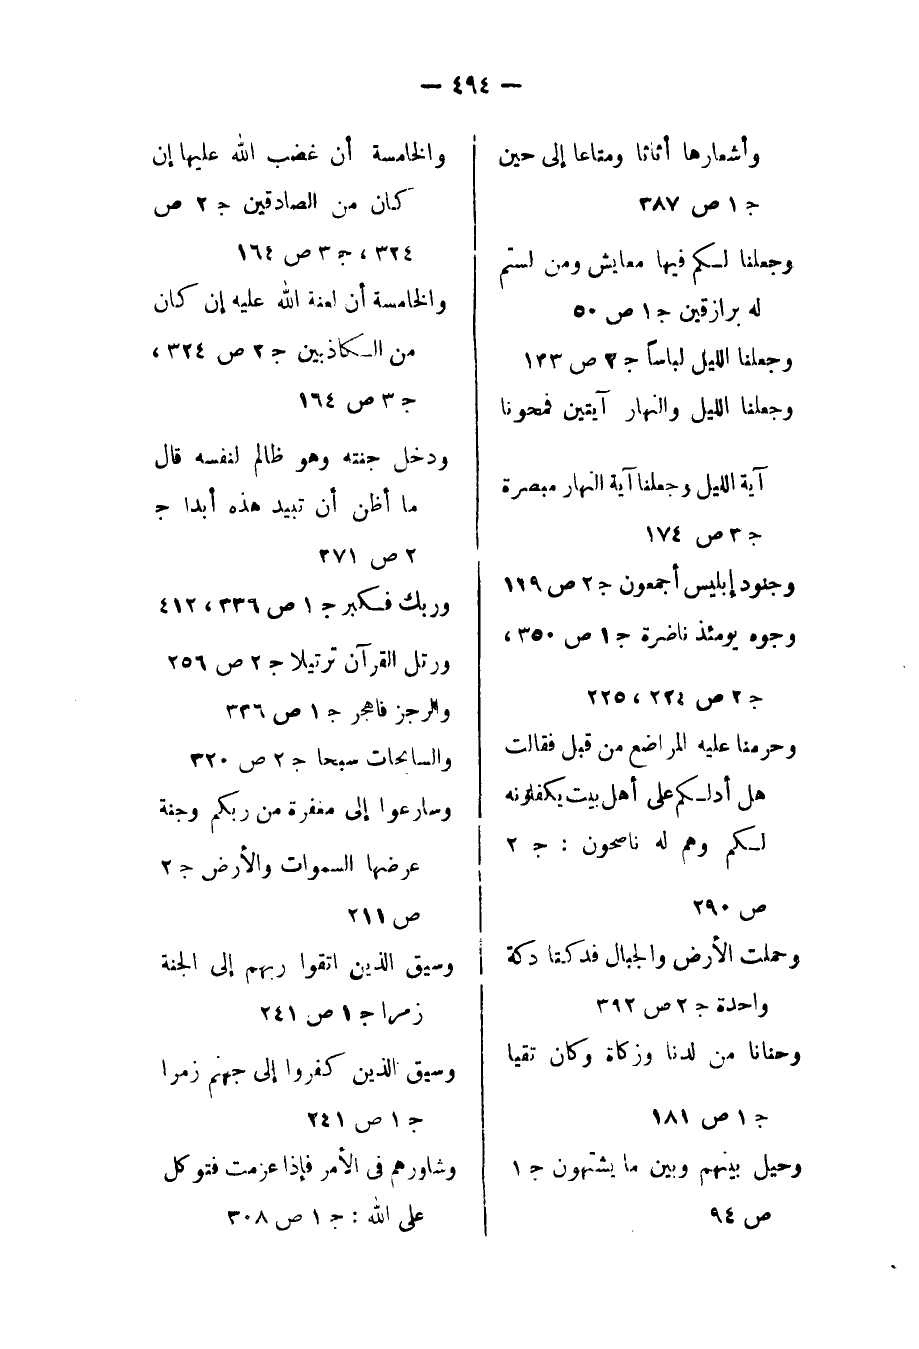 — ٤٩٤ —
وأشعارها أثاثا ومتاعا إلى حين
ج ١ ص ٣٨٧
وجعلنا لكم فيها معايش ومن لستم
له برازقين ج ١ ص ٥٠
وجعلنا الليل لباساً ج ٣ ص ١٢٣
وجعلنا الليل والنهار آيتين فمحونا
آية الليل وجعلنا آية النهار مبصرة
ج ٣ ص ١٧٤
وجنود إبليس أجمعون ج ٢ ص ١١٩
وجوه يومئذ ناضرة ج ١ ص ٣٥٠ ،
ج ٢ ص ٢٢٤ ، ٢٢٥
وحرمنا عليه المراضع من قبل فقالت
هل أدلكم على أهل بيت يكفلونه
لكم وهم له ناصحون : ج ٢
ص ٢٩٠
وحملت الأرض والجبال فدكتا دكة
واحدة ج ٢ ص ٣٩٢
وحنانا من لدنا وزكاة وكان تقيا
ج ١ ص ١٨١
وحيل بينهم وبين ما يشتهون ج ١
ص ٩٤
والخامسة أن غضب الله عليها إن
كان من الصادقين ج ٢ ص
٣٢٤ ، ج ٣ ص ١٦٤
والخامسة أن لعنة الله عليه إن كان
من الكاذبين ج ٢ ص ٣٢٤ ،
ج ٣ ص ١٦٤
ودخل جنته وهو ظالم لنفسه قال
ما أظن أن تبيد هذه أبدا ج
٢ ص ٢٧١
وربك فكبر ج ١ ص ٣٣٦ ، ٤١٢
ورتل القرآن ترتيلا ج ٢ ص ٢٥٦
والرجز فاهجر ج ١ ص ٣٣٦
والسابحات سبحا ج ٢ ص ٣٢٠
وسارعوا إلى مغفرة من ربكم وجنة
عرضها السموات والأرض ج ٢
ص ٢١١
وسيق الذين اتقوا ربهم إلى الجنة
زمرا ج ١ ص ٢٤١
وسيق الذين كفروا إلى جهنم زمرا
ج ١ ص ٢٤١
وشاورهم فى الأمر فإذا عزمت فتوكل
على الله : ج ١ ص ٣٠٨